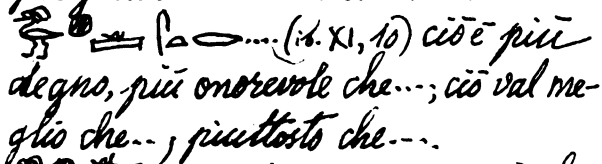 𓐍𓏛𓋴𓏏𓂋.... (ib. XI, 10) ciò è più
degno, più onorevole che...; ciò val me-
glio che...; piuttosto che....